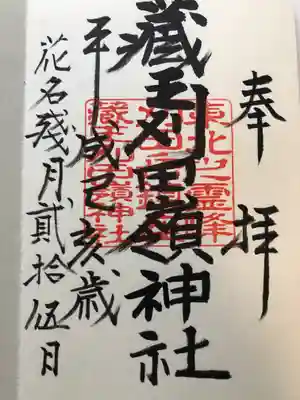 奉拝
藏王刈田嶺神社
平成己亥歳
花名残月貳拾伍日
東北之靈峰
藏王刈田嶺神社